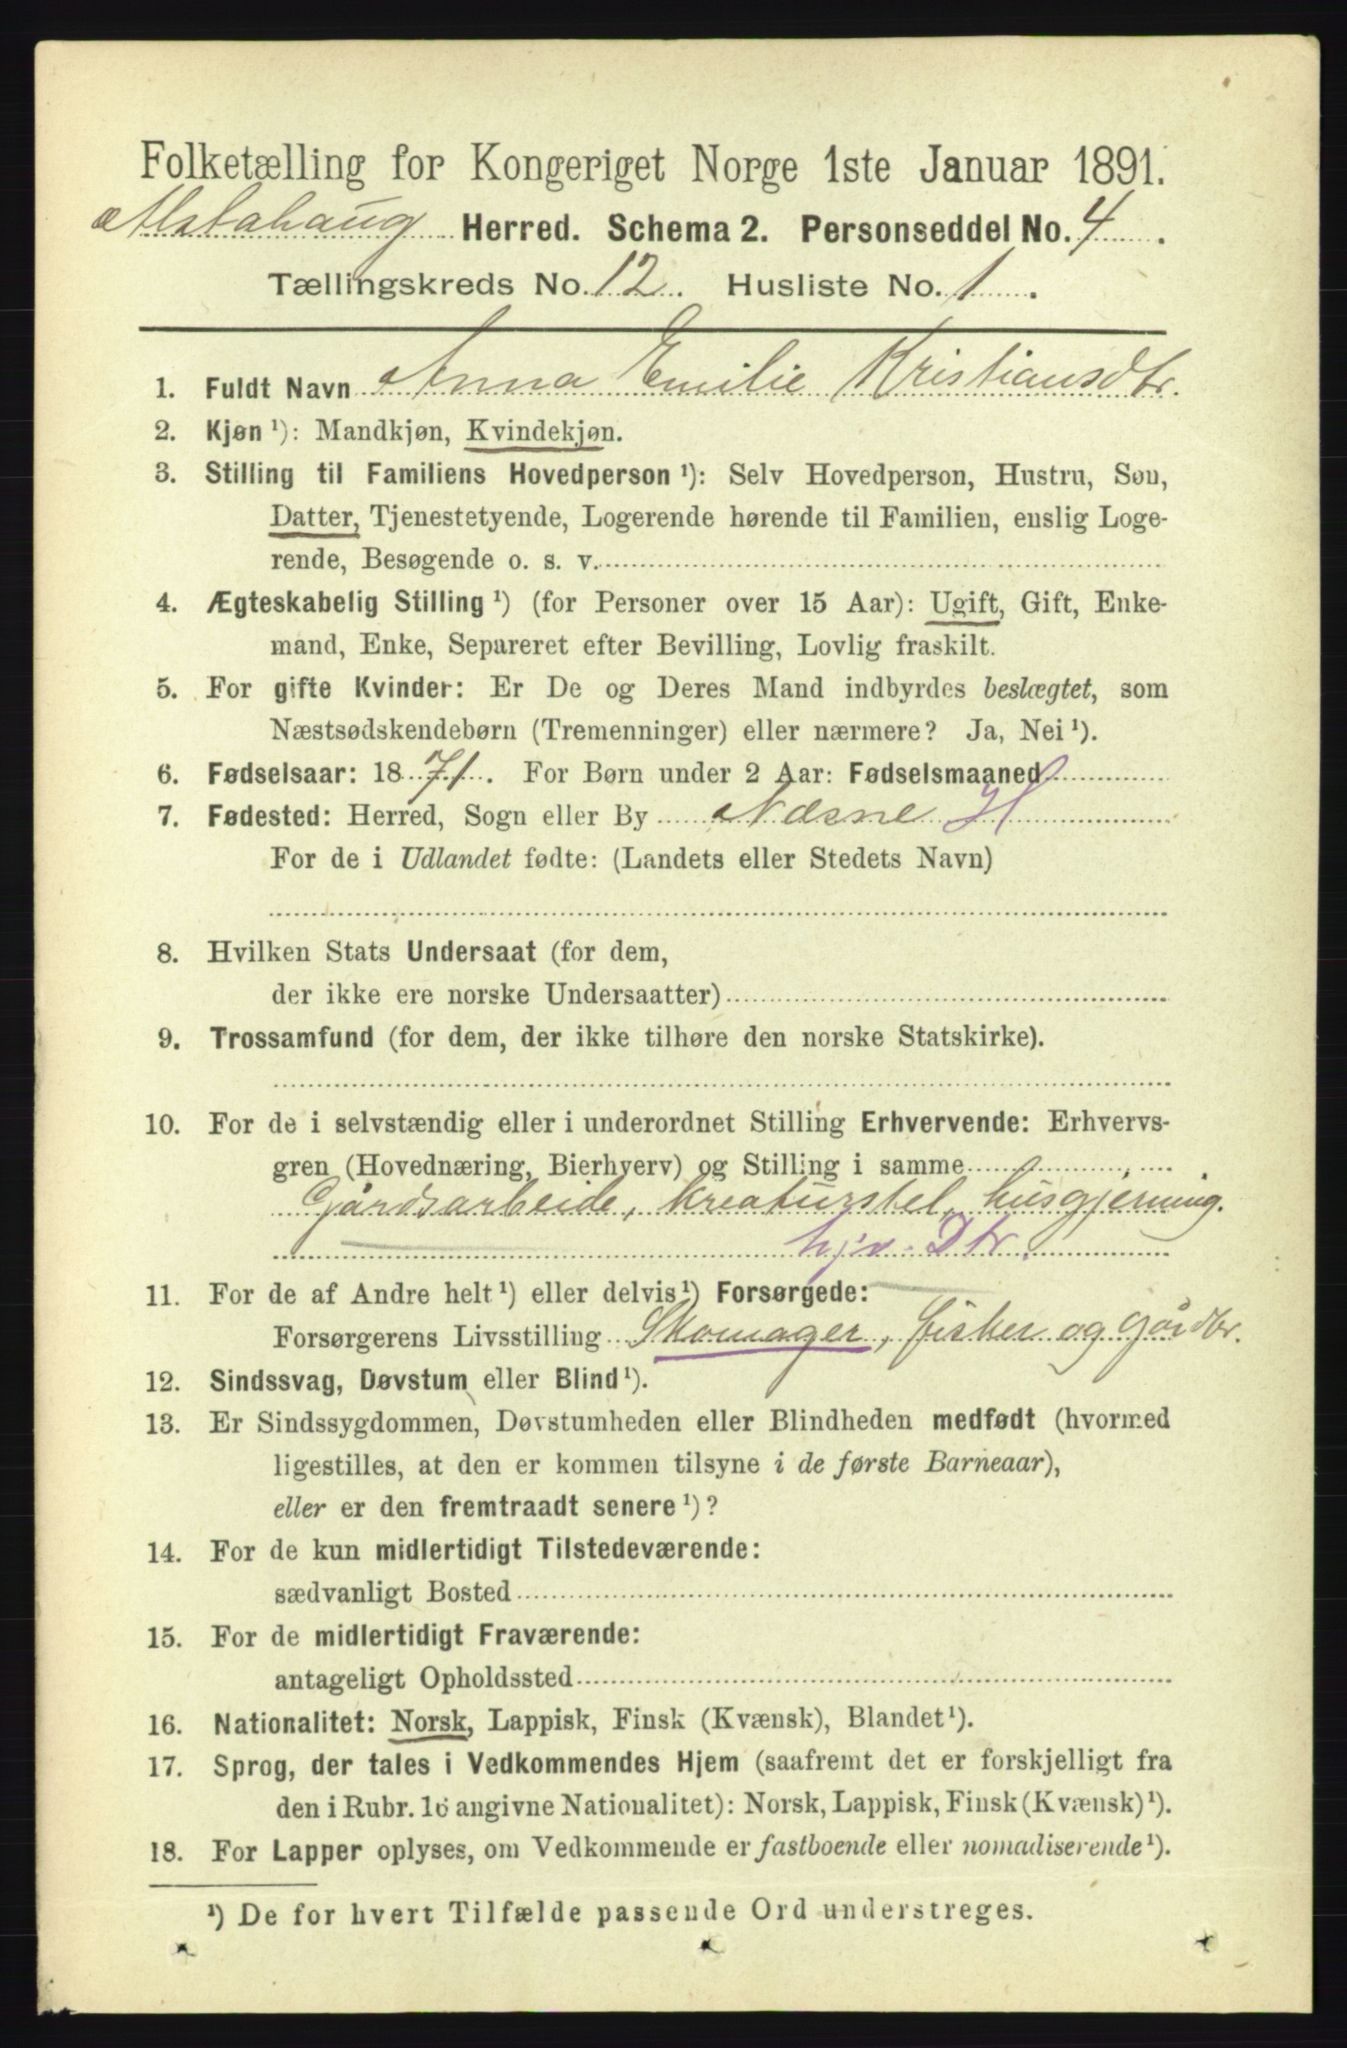 Folketælling for Kongeriget Norge 1ste Januar 1891.
Alstahaug Herred. Schema 2. Personseddel No. 4.
Tællingskreds No. 12. Husliste No. 1.
1. Fuldt Navn Anna Emilie Kristiansdtr.
2. Kjøn ¹): Mandkjøn, Kvindekjøn.
3. Stilling til Familiens Hovedperson ¹): Selv Hovedperson, Hustru, Søn,
Datter, Tjenestetyende, Logerende hørende til Familien, enslig Loge-
rende, Besøgende o. s. v.
4. Ægteskabelig Stilling ¹) (for Personer over 15 Aar): Ugift, Gift, Enke-
mand, Enke, Separeret efter Bevilling, Lovlig fraskilt.
5. For gifte Kvinder: Er De og Deres Mand indbyrdes beslægtet, som
Næstsødskendebørn (Tremenninger) eller nærmere? Ja, Nei ¹).
6. Fødselsaar: 1871. For Børn under 2 Aar: Fødselsmaaned
7. Fødested: Herred, Sogn eller By Næsne H
For de i Udlandet fødte: (Landets eller Stedets Navn)
8. Hvilken Stats Undersaat (for dem,
der ikke ere norske Undersaatter)
9. Trossamfund (for dem, der ikke tilhøre den norske Statskirke).
10. For de i selvstændig eller i underordnet Stilling Erhvervende: Erhvervs-
gren (Hovednæring, Bierhverv) og Stilling i samme
Gårdsarbeide, kreaturstel, husgjerning.
hjv. Dtr.
11. For de af Andre helt ¹) eller delvis ¹) Forsørgede:
Forsørgerens Livsstilling Skomager, fisker og gårdbr.
12. Sindssvag, Døvstum eller Blind ¹).
13. Er Sindssygdommen, Døvstumheden eller Blindheden medfødt (hvormed
ligestilles, at den er kommen tilsyne i de første Barneaar),
eller er den fremtraadt senere ¹)?
14. For de kun midlertidigt Tilstedeværende:
sædvanligt Bosted
15. For de midlertidigt Fraværende:
antageligt Opholdssted
16. Nationalitet: Norsk, Lappisk, Finsk (Kvænsk), Blandet ¹).
17. Sprog, der tales i Vedkommendes Hjem (saafremt det er forskjelligt fra
den i Rubr. 16 angivne Nationalitet): Norsk, Lappisk, Finsk (Kvænsk) ¹).
18. For Lapper oplyses, om Vedkommende er fastboende eller nomadiserende ¹).
¹) De for hvert Tilfælde passende Ord understreges.